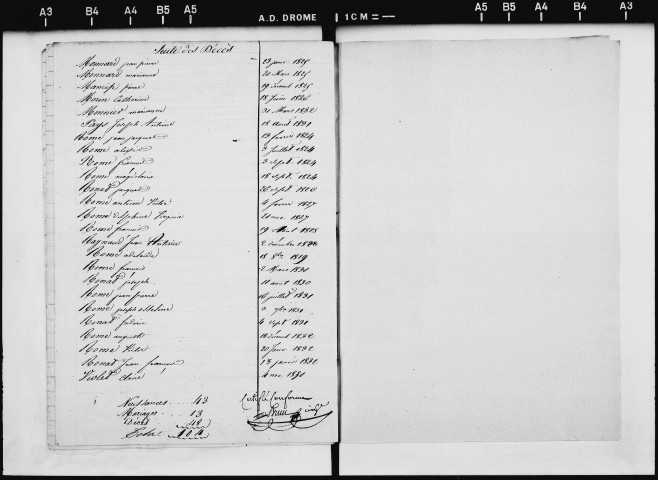 A3 B4 A4 B5 A5 A.D. DROME 1CM = A5 B5 A4 B4 A3
Suite des Décès
Monnard jean pierre 23 janv. 1825
Monnard marianne 20 Mars 1825
pierre 19 1825
Morin Catherine 18 Juin 1826
Monnet marianne 31 Mars 1832
Pays Joseph Antoine 18 aout 1831
Rome jean jacques 13 fevrier 1824
Rome 3 juillet 1824
Rome francois 3 sept. 1824
Rome magdelaine 18 sept. 1824
Bonat jacques 26 sept. 1826
Rome antoine Victor 4 fevrier 1827
Rome delphine Virginie 21 nov. 1827
Rome francois 29 1828
Raynaud Jean Antoine 2 décembre 1828
Rome adelaide 18 8bre 1829
Rome francois 2 Mars 1830
Bonat joseph 11 aout 1830
Rome jean pierre 16 juillet 1831
Rome joseph 7bre 1831
Bonat frederic 4 sept. 1831
Rome auguste 18 1832
Rome Victor 20 Janv. 1832
Bonat Jean francois 23 janvier 1832
Violet claire 4 nov. 1831
Naissances . . 43
Mariages . . 13
Décès . . 48
Total . . 104
Certifié Conforme